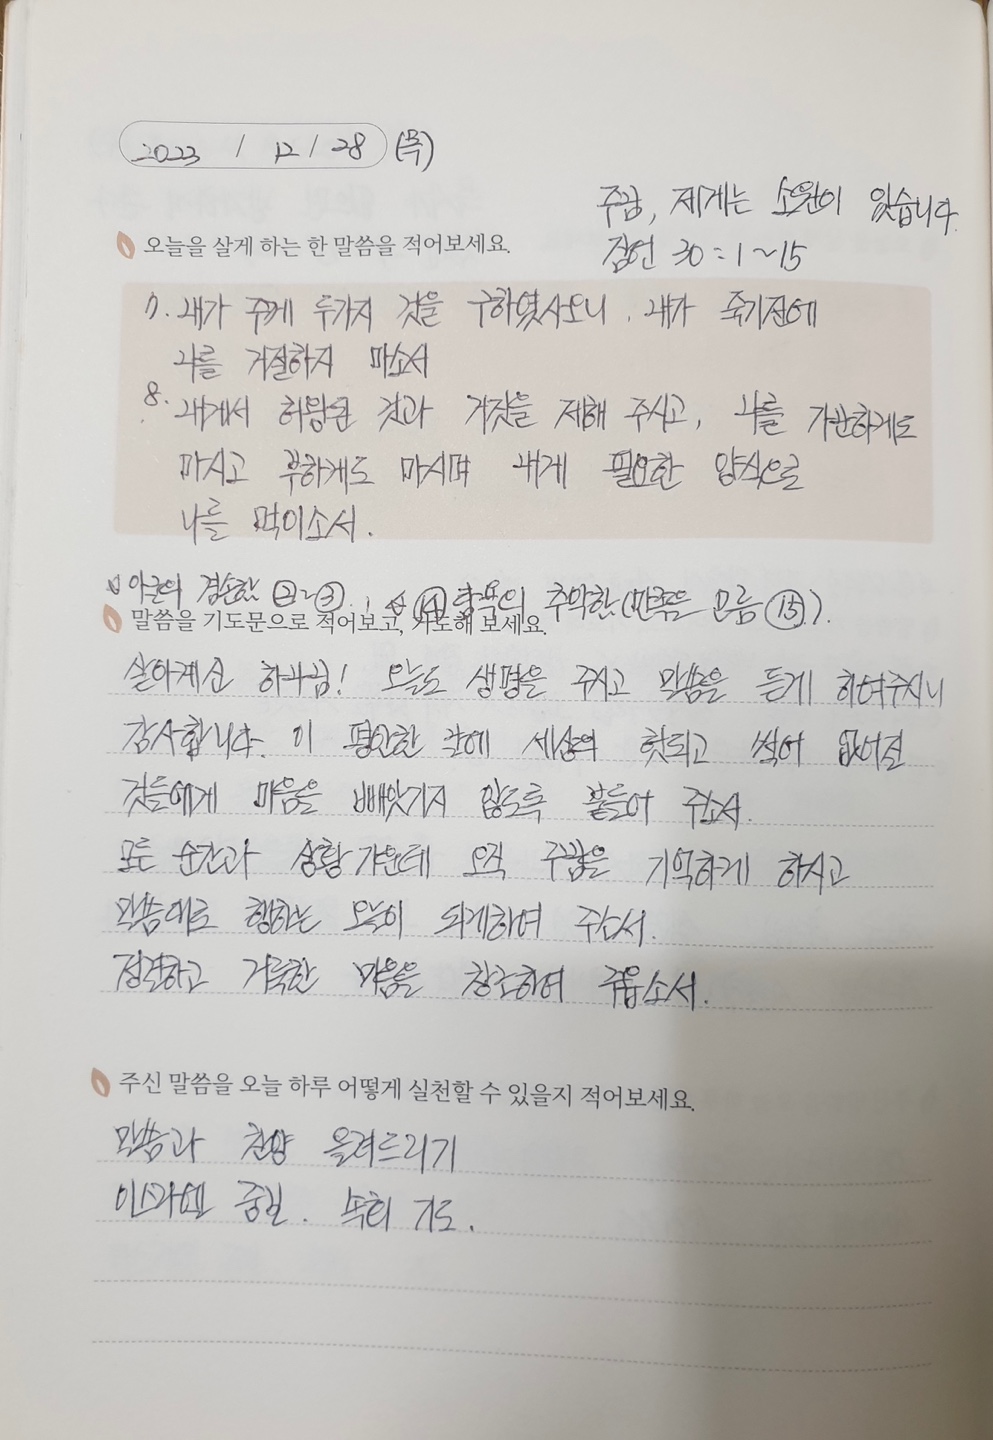 2023 / 12 / 28 (목)
주님, 제게는 소원이 있습니다.
잠언 30:1~15
오늘을 살게 하는 한 말씀을 적어보세요.
7. 내가 주께 두가지 것을 구하였사오니, 내가 죽기전에
나를 거절하지 마소서
8. 내게서 허망된 것과 거짓을 제해 주시고, 나를 가난하게도
마시고 부하게도 마시며 내게 필요한 양식으로
나를 먹이소서.
아굴의 겸손함 ②~③, ⑭ 탐욕의 추악함(만족을 모름 ⑮).
말씀을 기도문으로 적어보고, 기도해 보세요.
살아계신 하나님! 오늘도 생명을 주시고 말씀을 듣게 하여주시니
감사합니다. 이 평안한 날에 세상의 헛되고 썩어 없어질
것들에게 마음을 빼앗기지 않도록 붙들어 주소서.
모든 순간과 상황 가운데 오직 주님을 기억하게 하시고
말씀대로 행하는 오늘이 되게하여 주소서.
정결하고 거룩한 마음을 창조하여 주옵소서.
주신 말씀을 오늘 하루 어떻게 실천할 수 있을지 적어보세요.
말씀과 찬양 올려드리기
이스라엘 기도.